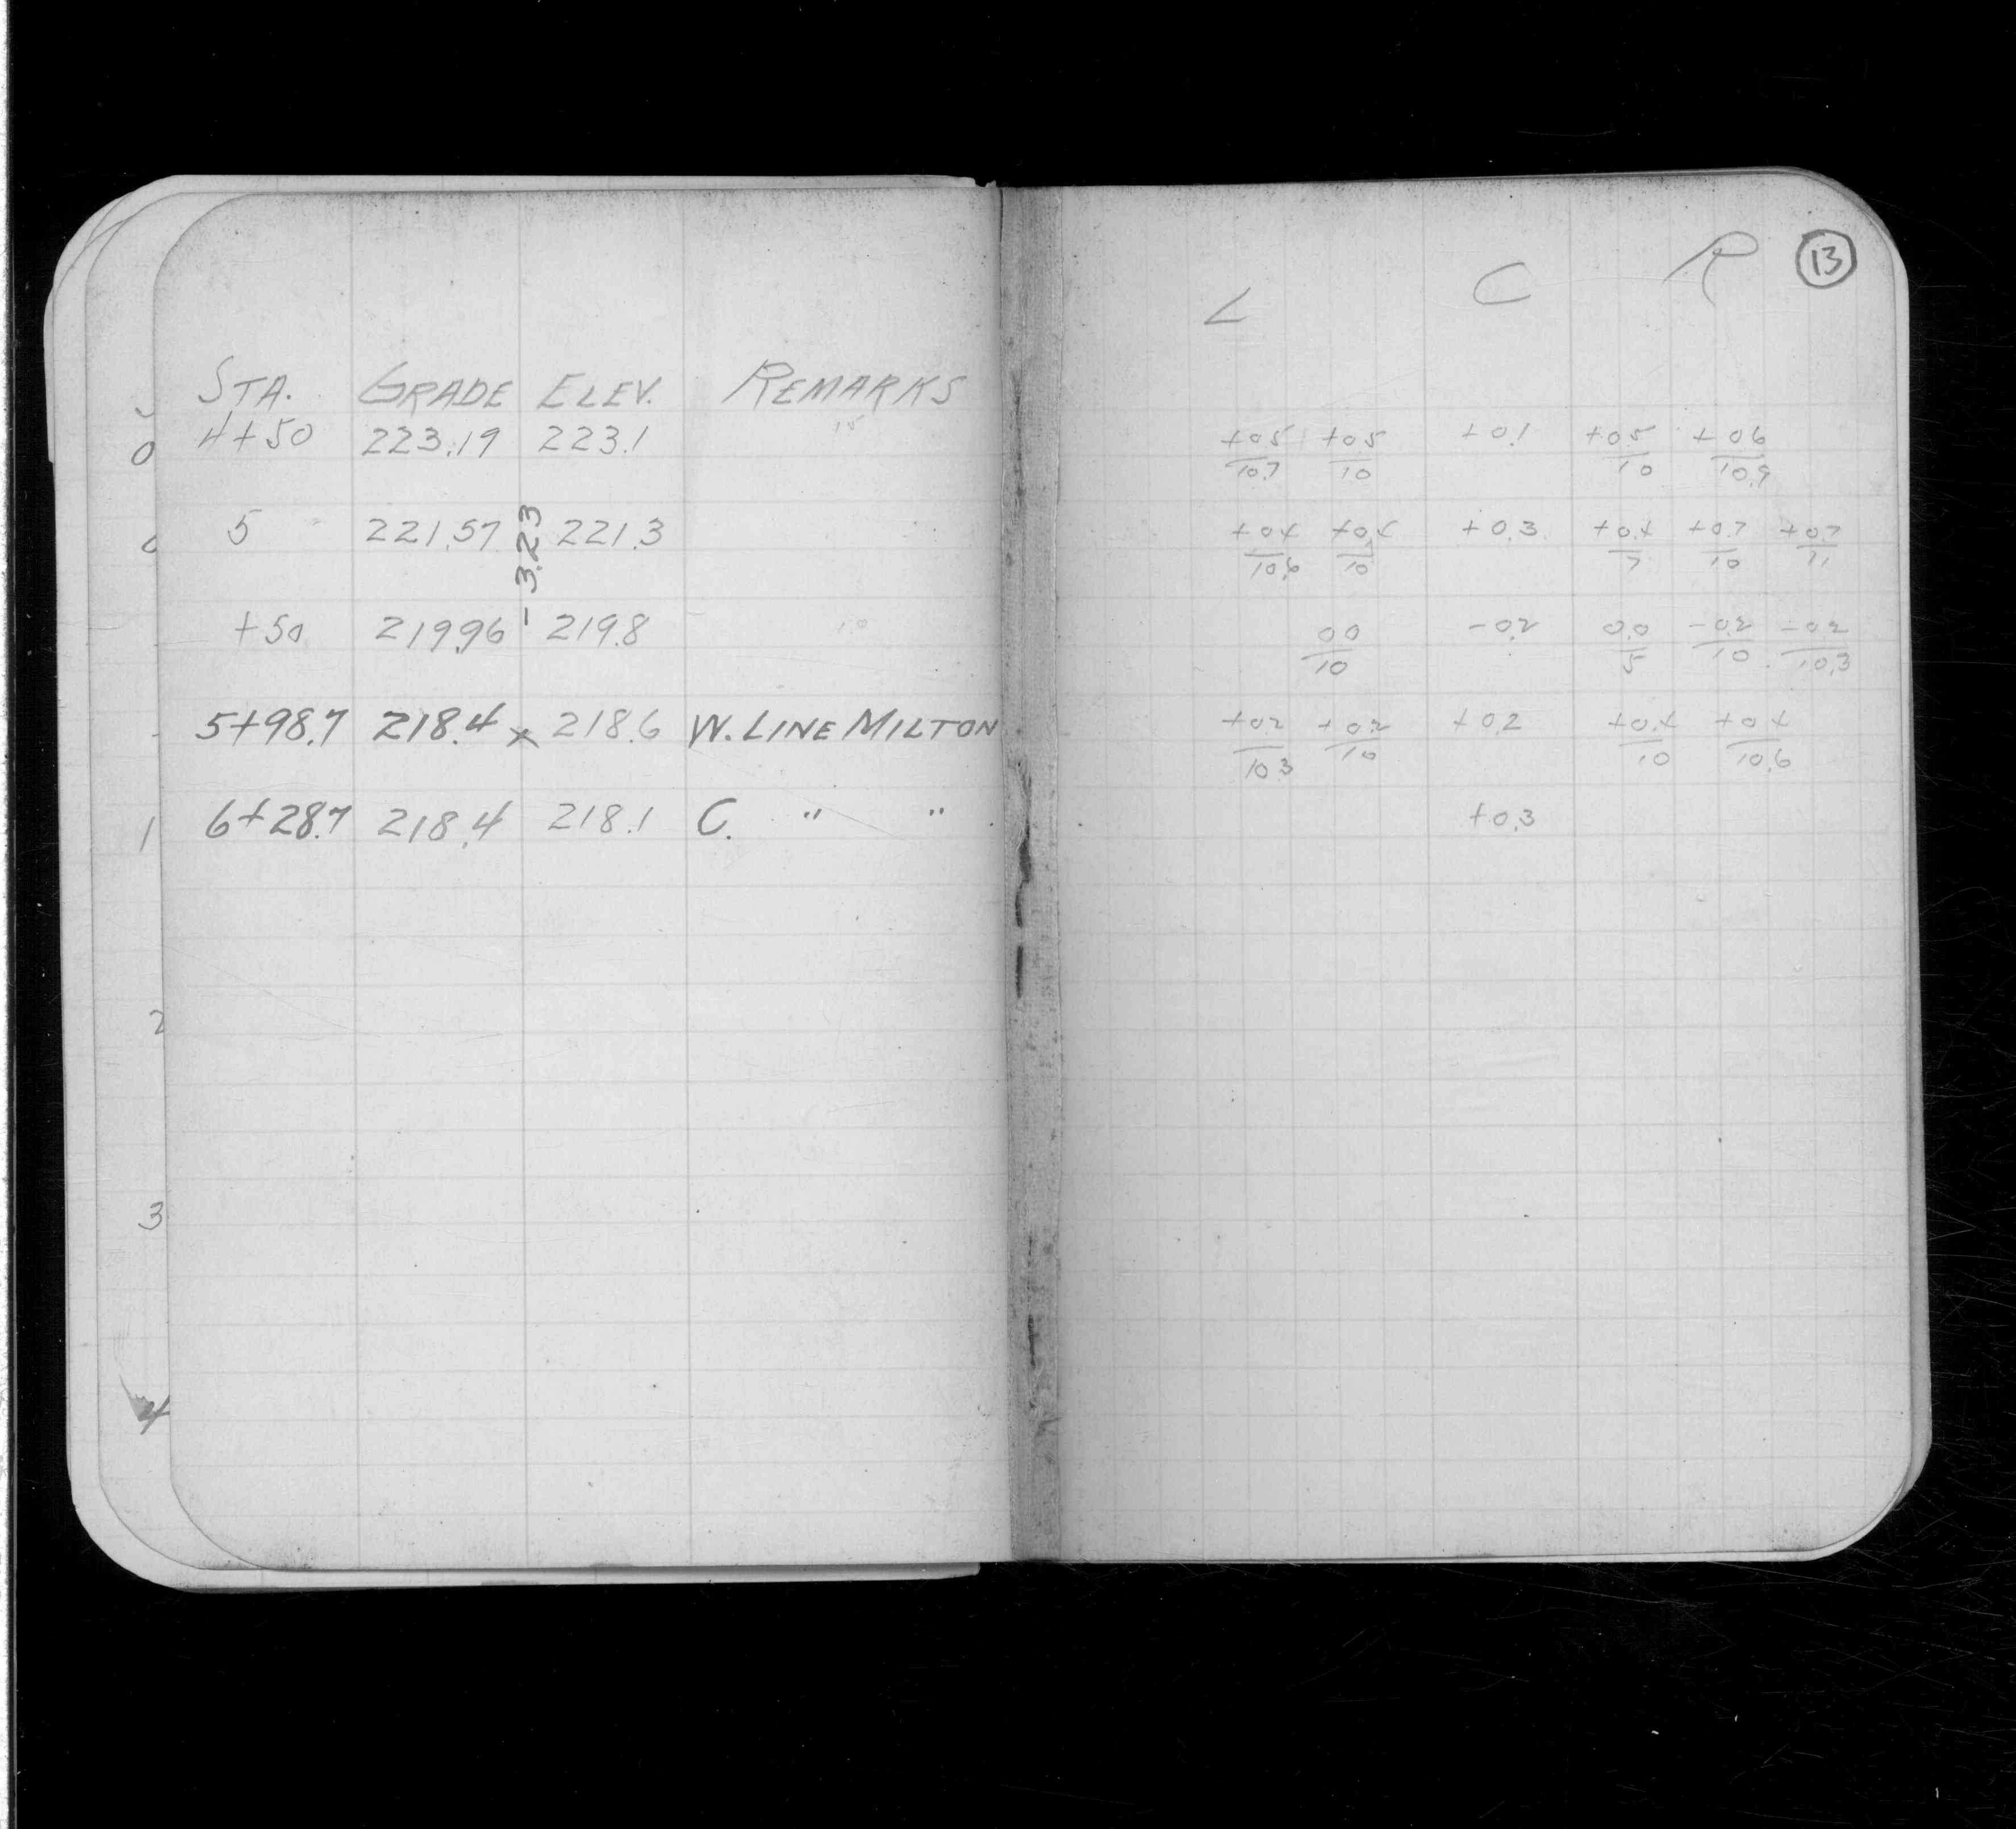 STA. GRADE ELEV. REMARKS
4+50 223.19 223.1
5 221.57 221.3
- 3.23
+50 219.96 219.8
5+98.7 218.4 x 218.6 W. LINE MILTON
6+28.7 218.4 218.1 C. " "
0
1
2
3
4
13
L C R
+05/10.7 +05/10 +0.1 +0.5/10 +06/10.9
+04/10.6 +04/10 +0.3 +0.4/7 +0.7/10 +0.7/11
00/10 -0.2 0.0/5 -0.2/10 -02/10.3
+02/10.3 +02/10 +0.2 +0.4/10 +04/10.6
+0.3